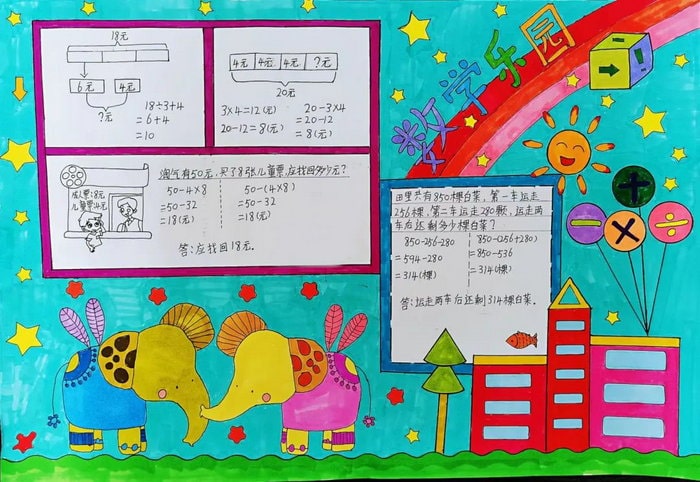 数学乐园
18元
6元 4元
?元
18÷3+4
=6+4
=10
4元 4元 4元 ?元
20元
3×4=12(元) 20-3×4
=20-12
20-12=8(元) =8(元)
淘气有50元,买了8张儿童票,应找回多少元?
成人票:8元
儿童票:4元
50-4×8 50-(4×8)
=50-32 =50-32
=18(元) =18(元)
答:应找回18元。
田里共有850棵白菜,第一车运走
256棵,第二车运走280颗,运走两
车后还剩多少棵白菜?
850-256-280 850-(256+280)
=594-280 =850-536
=314(棵) =314(棵)
答:运走两车后还剩314棵白菜。
+
- × ÷